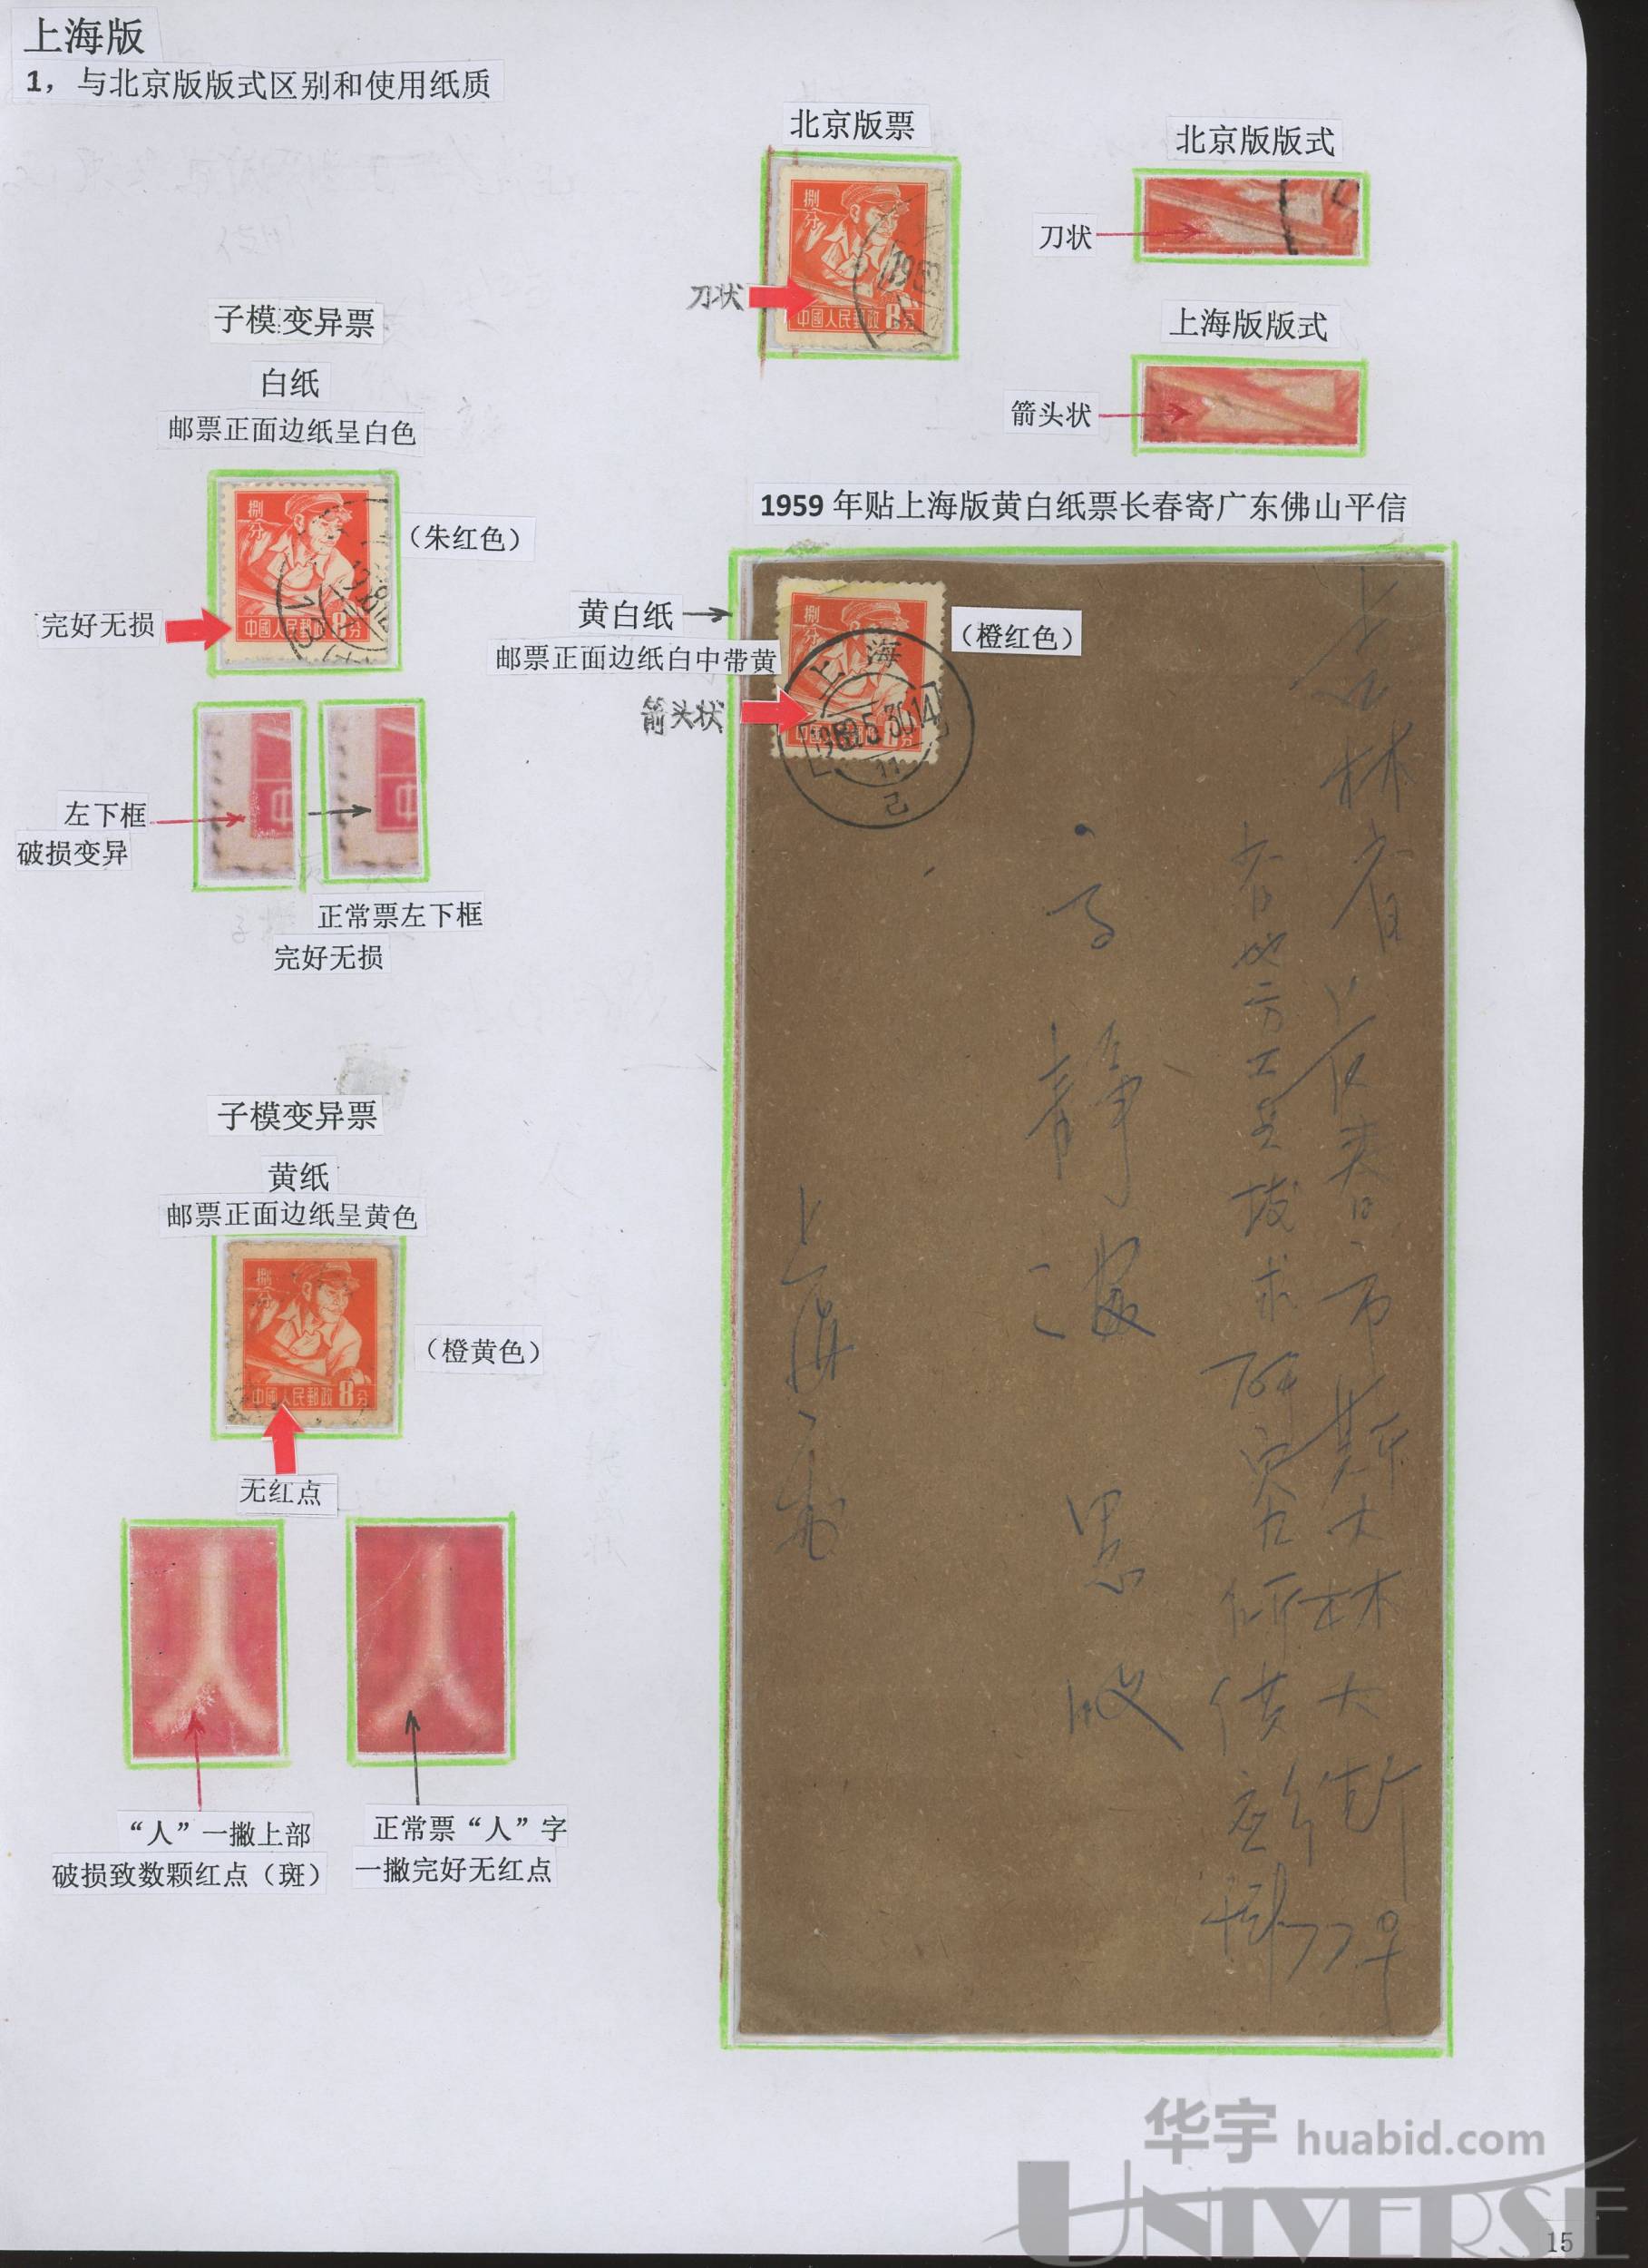 上海版
1，与北京版版式区别和使用纸质
北京版票
北京版版式
刀状
捌分
中國人民郵政 8分
刀状
上海版版式
箭头状
子模变异票
白纸
邮票正面边纸呈白色
捌分
中國人民郵政 8分
（朱红色）
完好无损
左下框
破损变异
中
中
正常票左下框
完好无损
1959 年贴上海版黄白纸票长春寄广东佛山平信
黄白纸
邮票正面边纸白中带黄
箭头状
捌分
上海
11
己
（橙红色）
吉林省长春市斯大林大街77号
静波
上海
子模变异票
黄纸
邮票正面边纸呈黄色
捌分
中國人民郵政 8分
（橙黄色）
无红点
“人”一撇上部
破损致数颗红点（斑）
正常票“人”字
一撇完好无红点
华宇 huabid.com
UNIVERSE
15